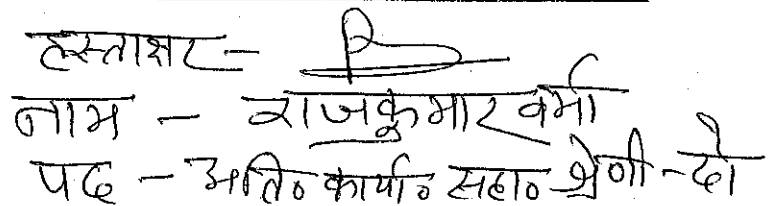 हस्ताक्षर -
नाम - राजकुमार वर्मा
पद - अति० कार्या० सहा० श्रेणी - दो